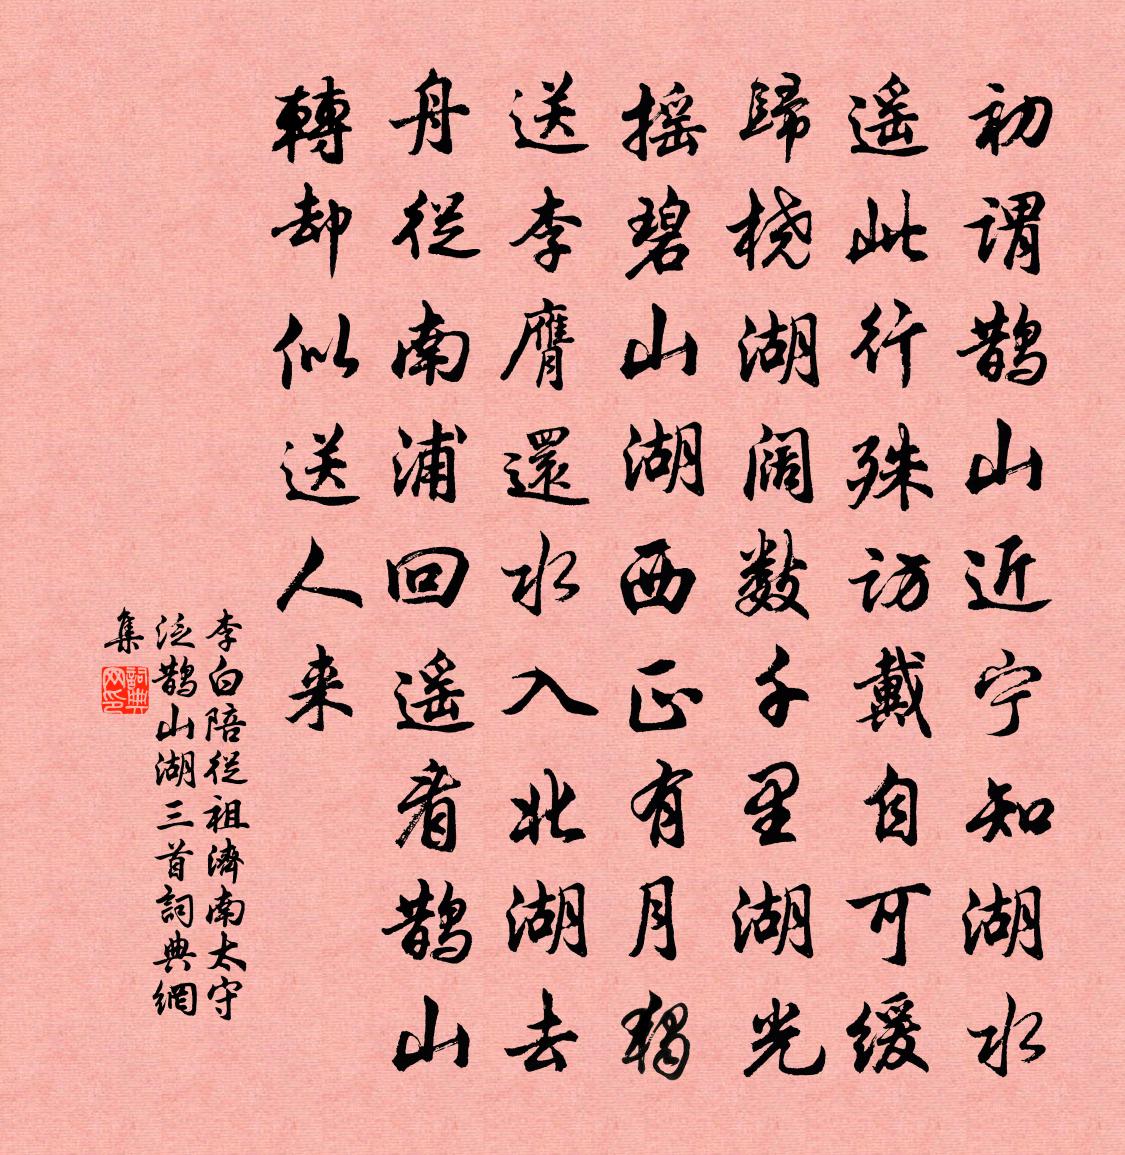 初謂鹊山近宁知湖水
遥此行殊访戴自可缓
歸桡湖阔数千里湖光
摇碧山湖西正有月獨
送李膺還水入北湖去
舟從南浦回遥看鹊山
轉却似送人来
李白陪從祖濟南太守
泛鹊山湖三首詞典網
集
詞典
网印